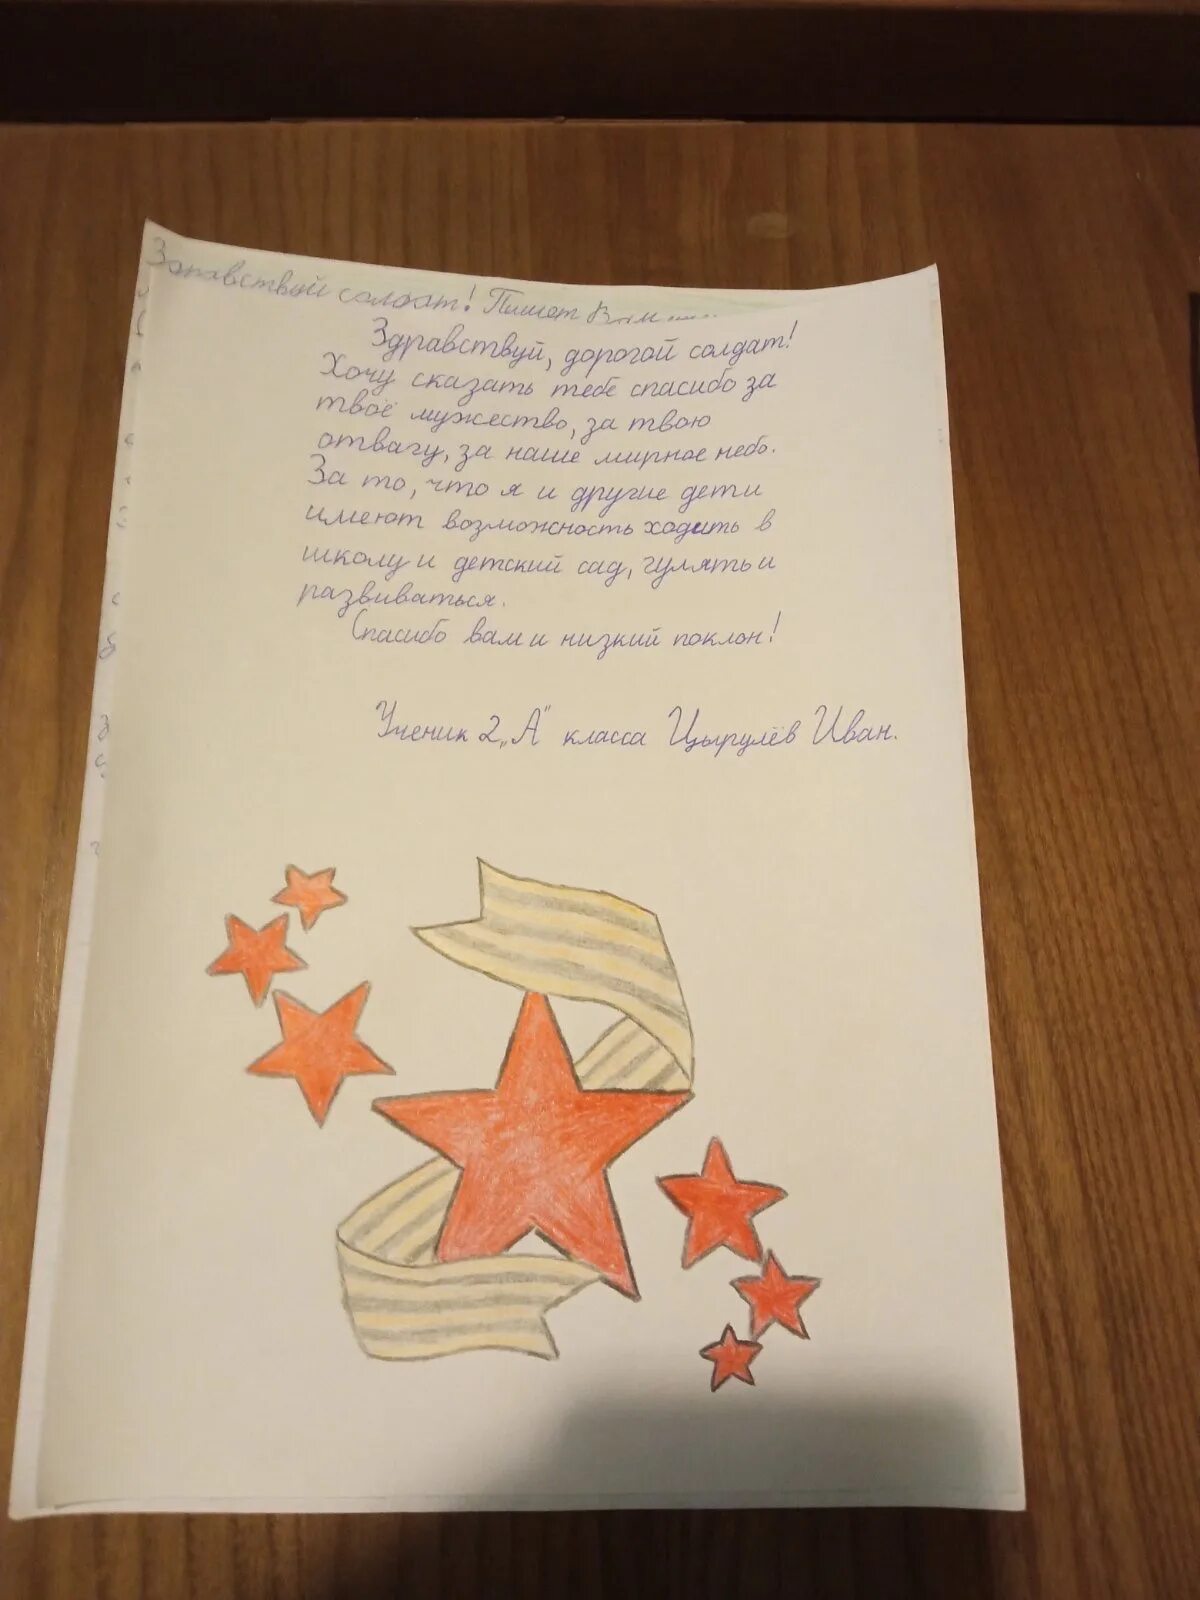 Здравствуй солдат! Пишет Вам .....
Здравствуй, дорогой солдат!
Хочу сказать тебе спасибо за
твоё мужество, за твою
отвагу, за наше мирное небо.
За то, что я и другие дети
имеют возможность ходить в
школу и детский сад, гулять и
развиваться.
Спасибо вам и низкий поклон!
Ученик 2 „А" класса Цырулёв Иван.